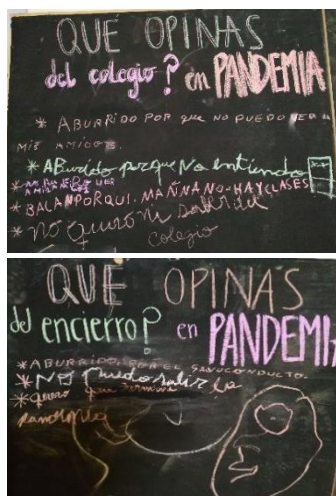 QUE OPINAS
del colegio? en PANDEMIA
* ABURRIDO POR que NO PUEDO VER A
MIS AMIGOS.
* ABurrido porque No entiendo
* VER
AMIGOS
* MAÑNA NO-HAYCLASES
* no quiero
colegio
QUE OPINAS
del encierro? en PANDEMIA
* ABURRIDO, POR EL SALVOCONDUCTO.
* No Puedo salir
* Quiero que termine
Pandemia